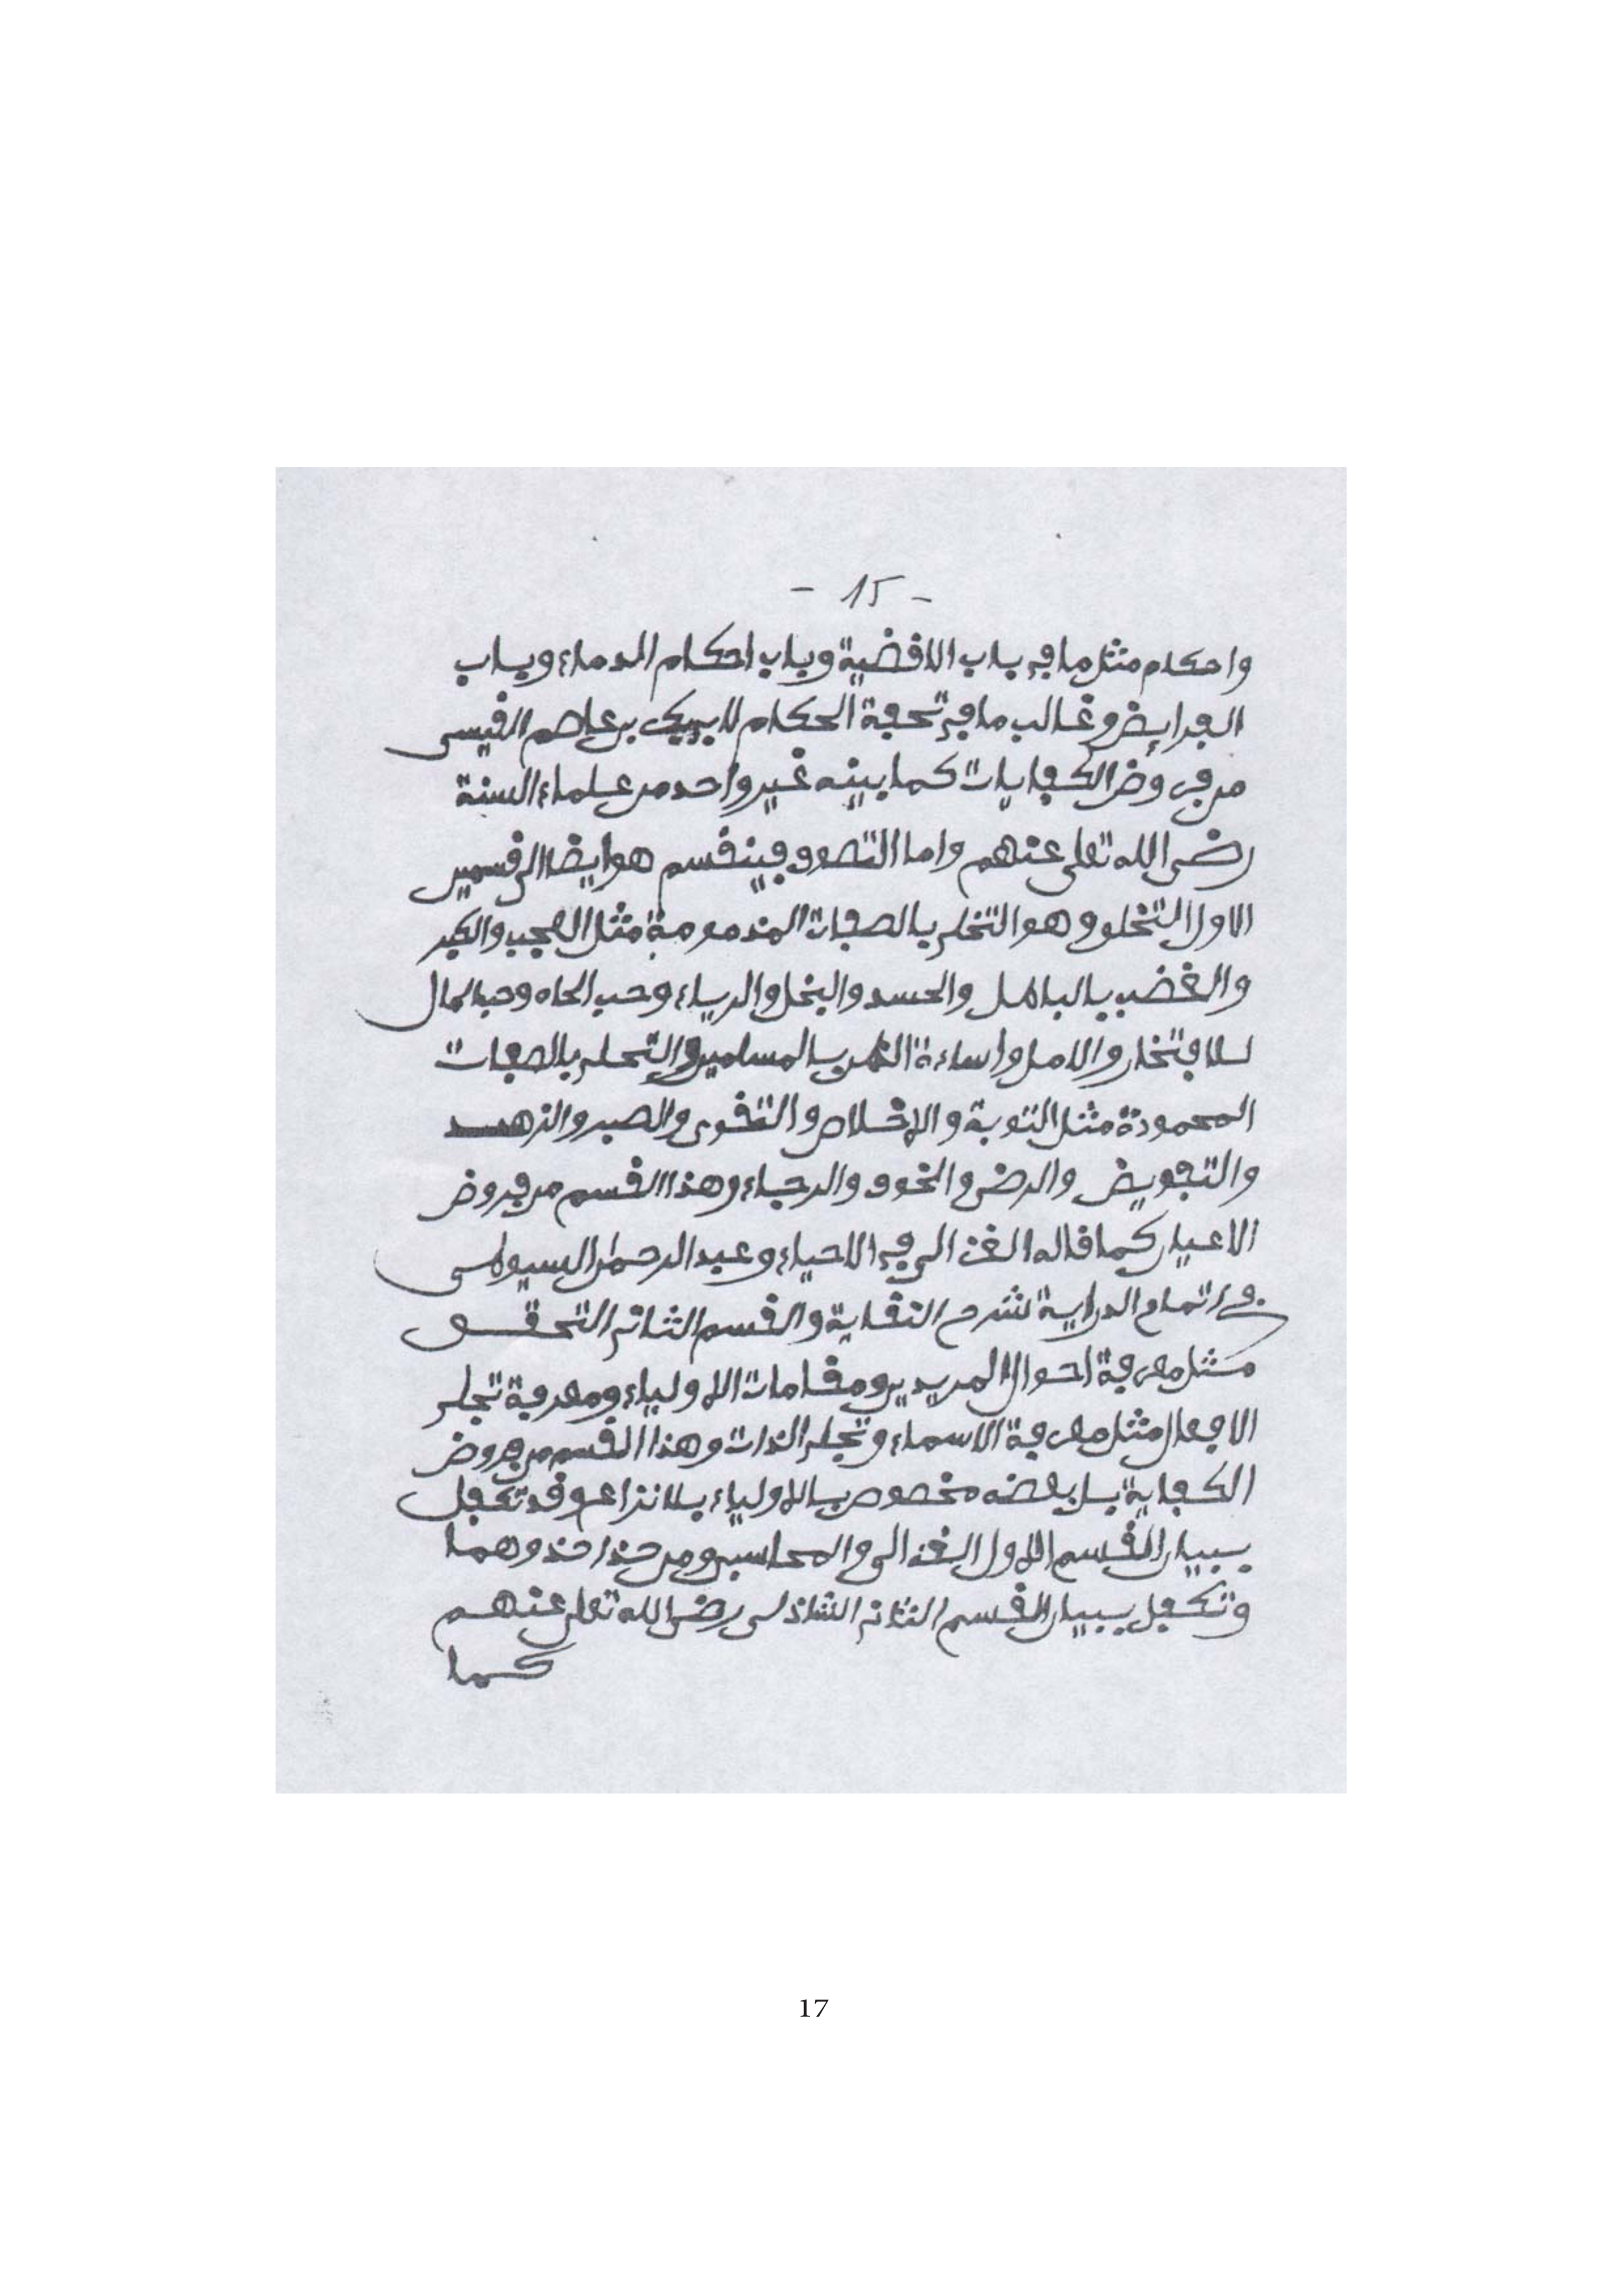 - 15 -
واحكام مثل ما في باب الاقضية وباب احكام الدماء وباب
الفرايض وغالب ما في تحفة الحكام لابي بكر بن عاصم القيسي
من فروض الكفايات كما بينه غير واحد من علماء السنة
رضي الله تعلى عنهم واما التصوف فينقسم هو ايضا الى قسمين
الاول التخلق وهو التخلي بالصفات المذمومة مثل العجب والكبر
والغضب بالباطل والحسد والبخل والرياء وحب الجاه وحب المال
للافتخار والامل واساءة الظن بالمسلمين والتحلي بالصفات
المحمودة مثل التوبة والاخلاص والتقوى والصبر والزهد
والتفويض والرضى والخوف والرجاء وهذا القسم من فروض
الاعيان كما قاله الغزالي في الاحياء وعبد الرحمان السيوطي
في اتمام الدراية شرح النقاية والقسم الثاني التحقق
مثل معرفة احوال المريدين ومقامات الاولياء ومعرفة تجلي
الافعال مثل معرفة الاسماء وتجلي الذات وهذا القسم من فروض
الكفاية بل بعضه مخصوص بالاولياء بلا نزاع وقد تكفل
ببيان القسم الاول الغزالي والمحاسبي ومن حذا حذوهما
وتكفل ببيان القسم الثاني الشاذلي رضي الله تعلى عنهم
كما
17